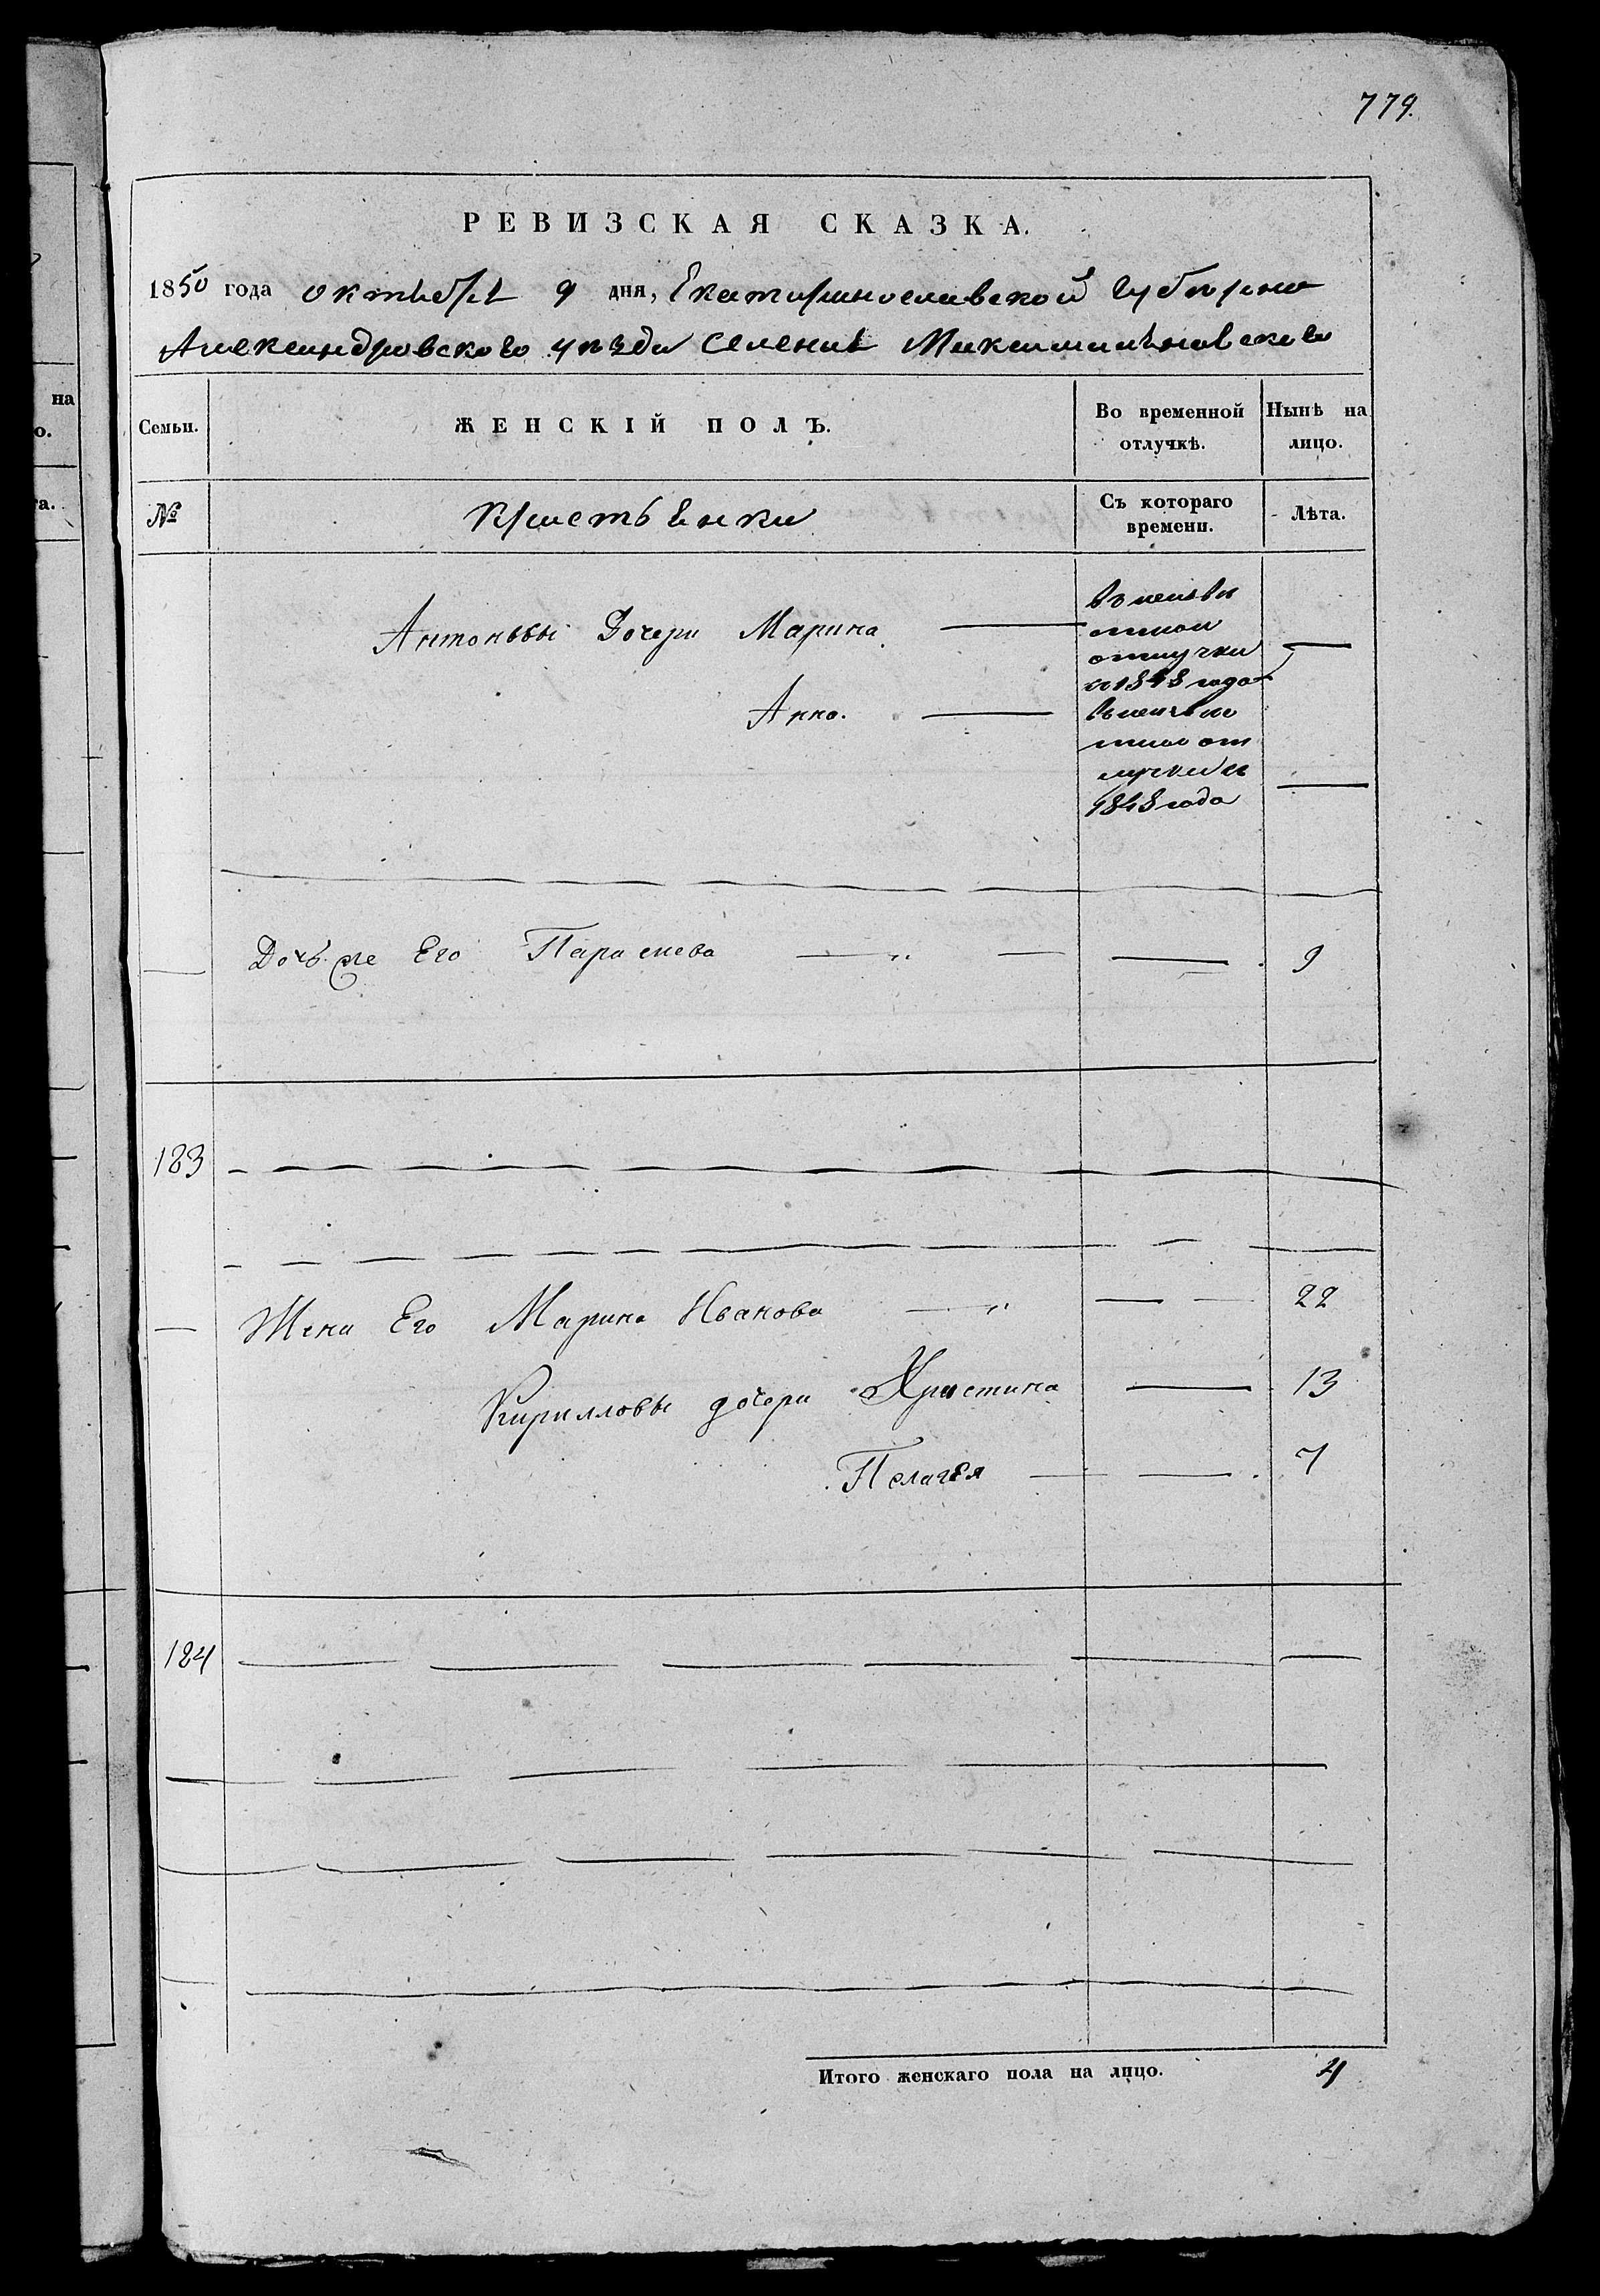 779.
РЕВИЗСКАЯ СКАЗКА.
1850 года октября 9 дня, Екатеринославской губернии
Александровского уѣзда селения Максимильяновского
Семьи. ЖЕНСКІЙ ПОЛЪ. Во временной отлучкѣ. Нынѣ на лицо.
№ Крестьянки Съ котораго времени. Лѣта.
Антоновы Дочери Марина — въ неизвѣ
стной
отлучки
съ 1848 года —
Анна. — въ неизвѣ
стной от
лучки съ
1848 года —
Дочь же Его Параскева — " — — 9
183
Жена Его Марина Иванова — " — — 22
Кирилловы дочери Христина — 13
Пелагея — — 7
184
Итого женскаго пола на лицо. 4
на
о.
та.